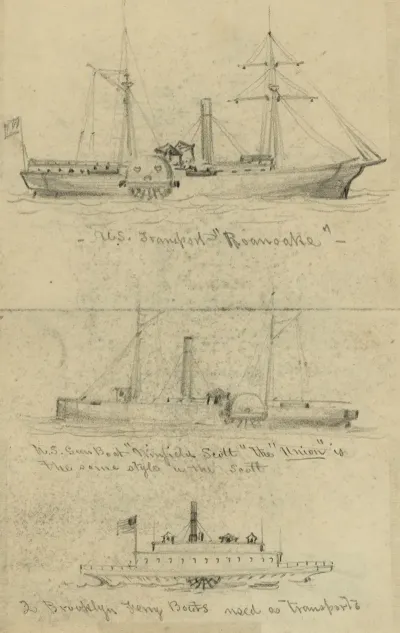 - U.S. Transport "Roanoake" -
U.S. Gun Boat "Winfield Scott" The "Union" is
the same style as the Scott
2 Brooklyn Ferry Boats used as Transports